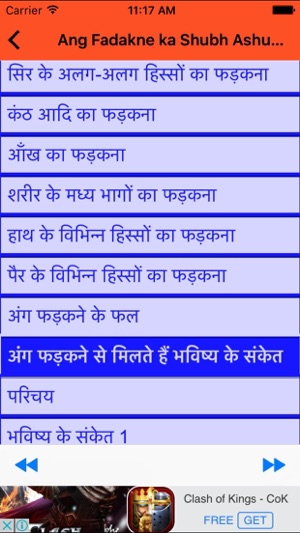 Carrier 11:17 AM
Ang Fadakne ka Shubh Ashu...
सिर के अलग-अलग हिस्सों का फड़कना
कंठ आदि का फड़कना
आँख का फड़कना
शरीर के मध्य भागों का फड़कना
हाथ के विभिन्न हिस्सों का फड़कना
पैर के विभिन्न हिस्सों का फड़कना
अंग फड़कने के फल
अंग फड़कने से मिलते हैं भविष्य के संकेत
परिचय
भविष्य के संकेत 1
Clash of Kings - CoK
FREE GET